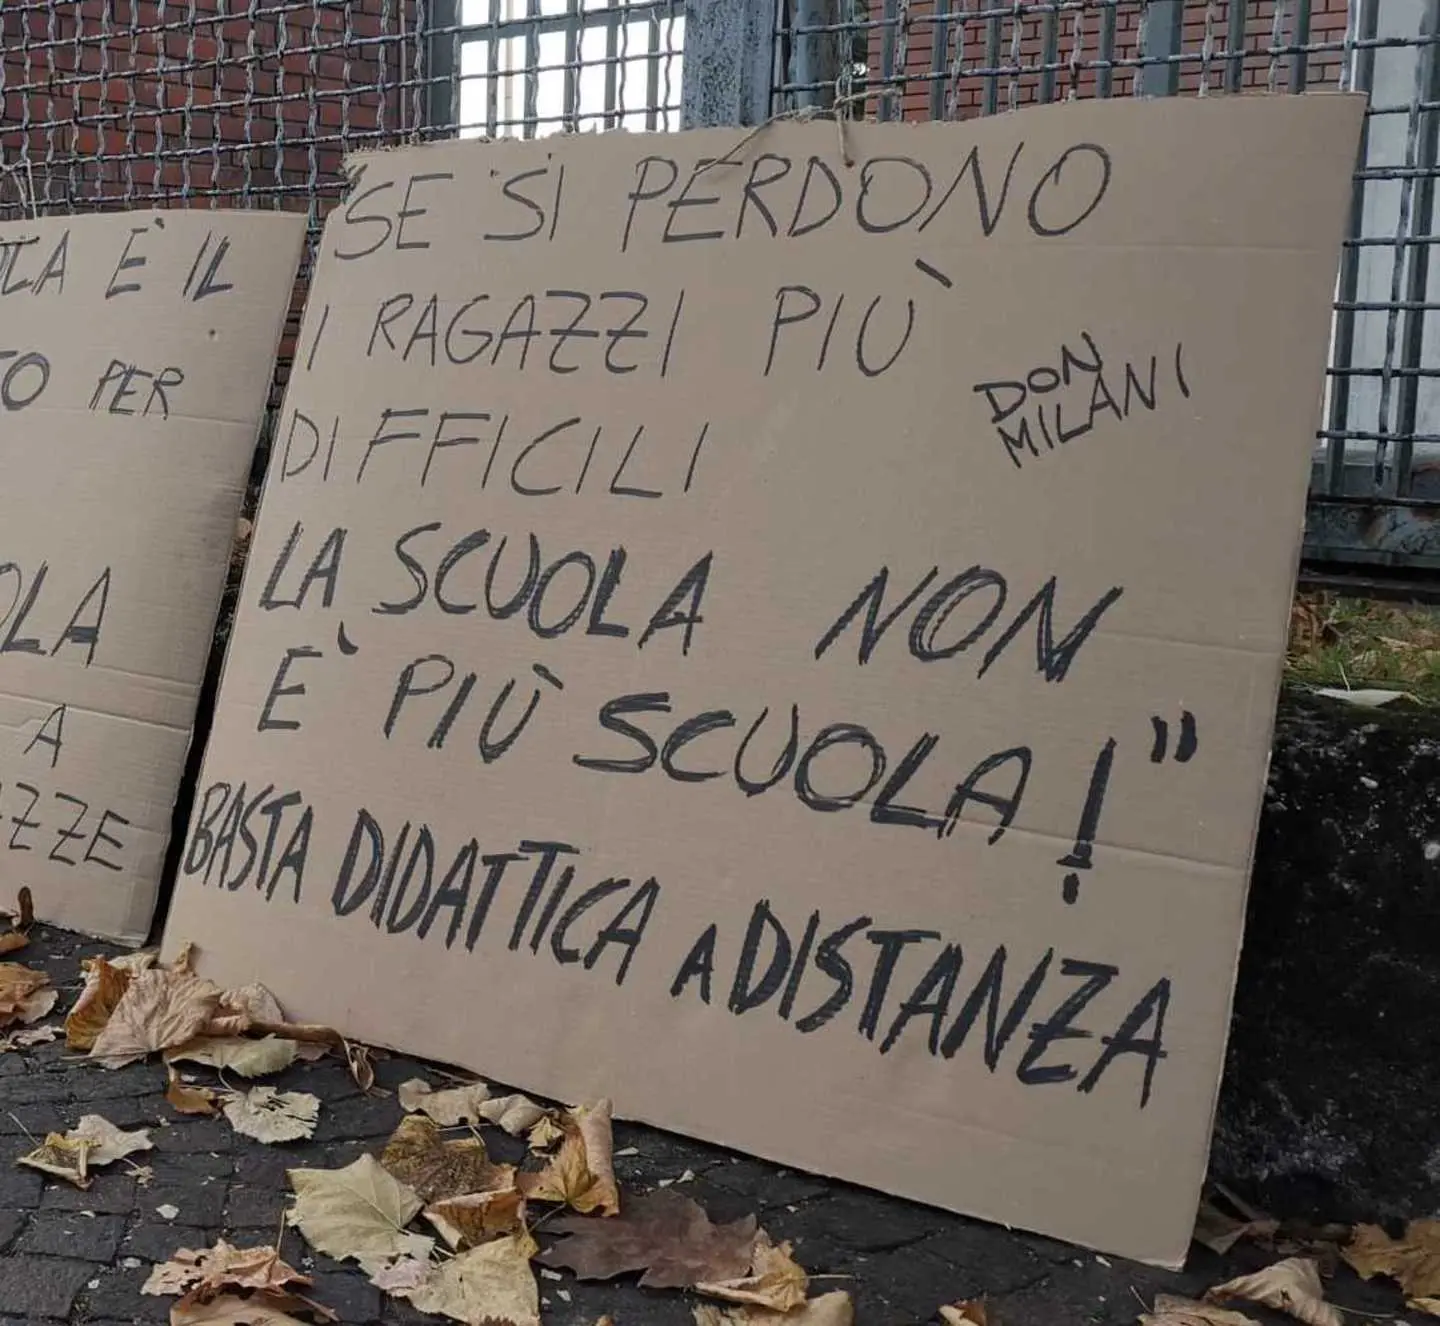 LA È IL
TO PER
OLA
A
ZZE
"SE SI PERDONO
I RAGAZZI PIÙ
DIFFICILI
LA SCUOLA NON
E' PIÙ SCUOLA!"
DON
MILANI
BASTA DIDATTICA A DISTANZA